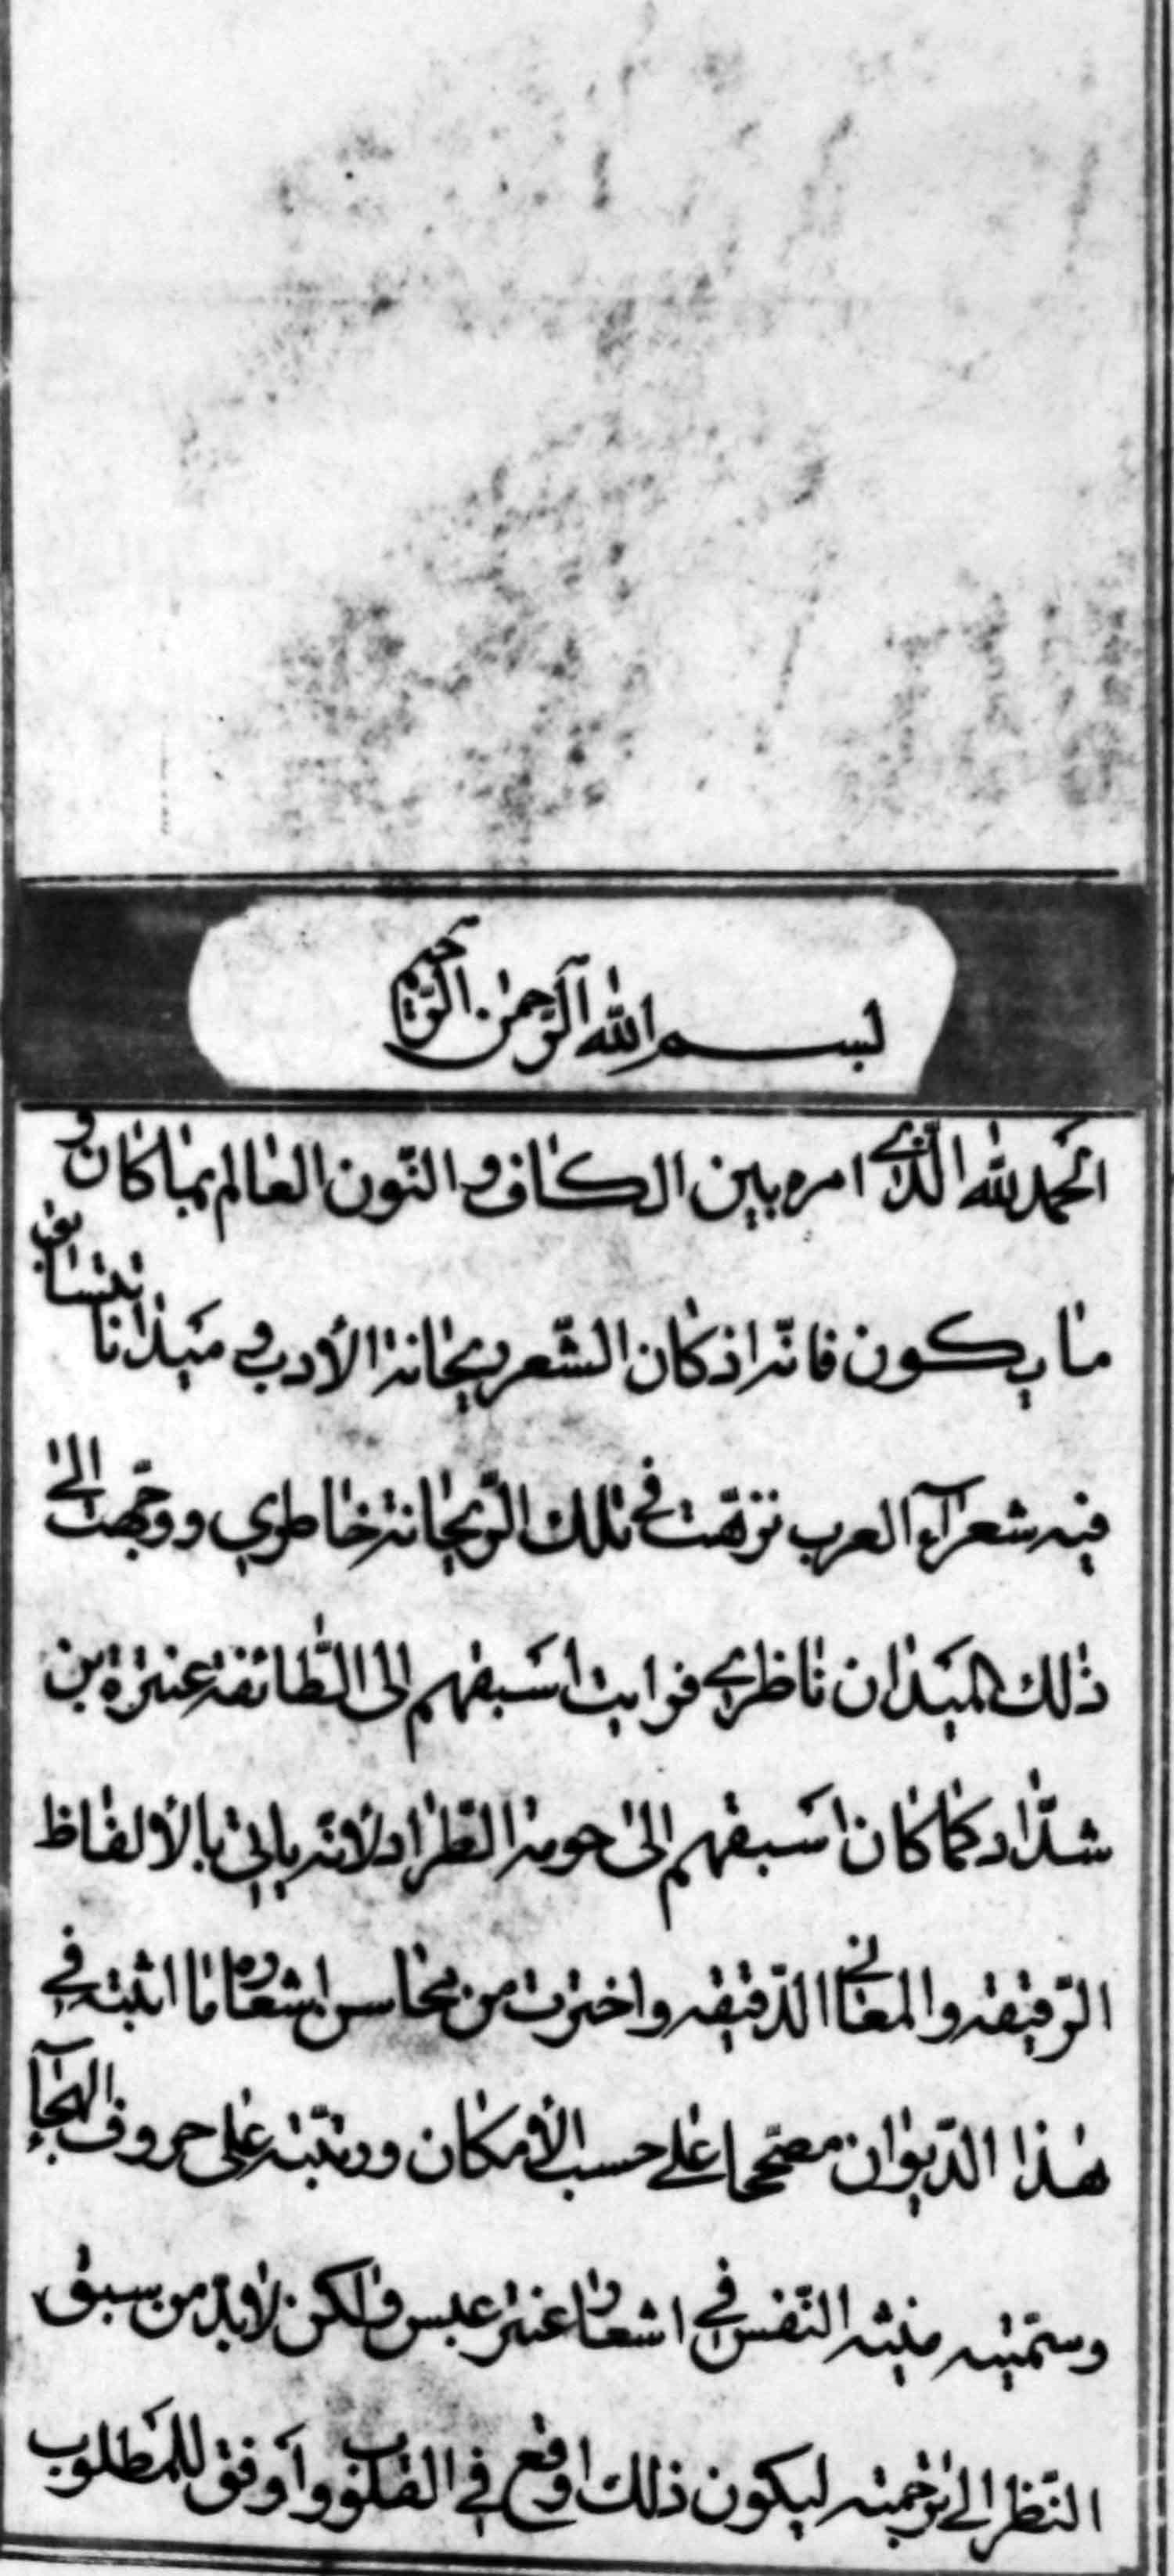 بسم الله الرّحمن الرّحيم
الحمد لله الّذي امره بين الكاف والنّون العالم بما كان و
ما يكون فانّه اذ كان الشّعر ريحانة الأدب و ميدانا يتسابق
فيه شعرآء العرب نزهّت في تلك الرّيحانة خاطري ووجّهت الى
ذلك الميدان ناظري فرايت اسبقهم الى الطّائفة عنترة بن
شدّاد كما كان اسبقهم الى حومة الطّراد لأنّه ياتي بالألفاظ
الرّقيقة والمعاني الدّقيقة واخترت من محاسن اشعاره ما اثبته في
هذا الدّيوان مصحّحا على حسب الأمكان ورتّبته على حروف الهجآء
وسمّيته منية النّفس في اشعار عنتر عبس ولكن لا بدّ من سبق
النّظر الى ترجمته ليكون ذلك اوقع في القلوب واوفق للمطلوب